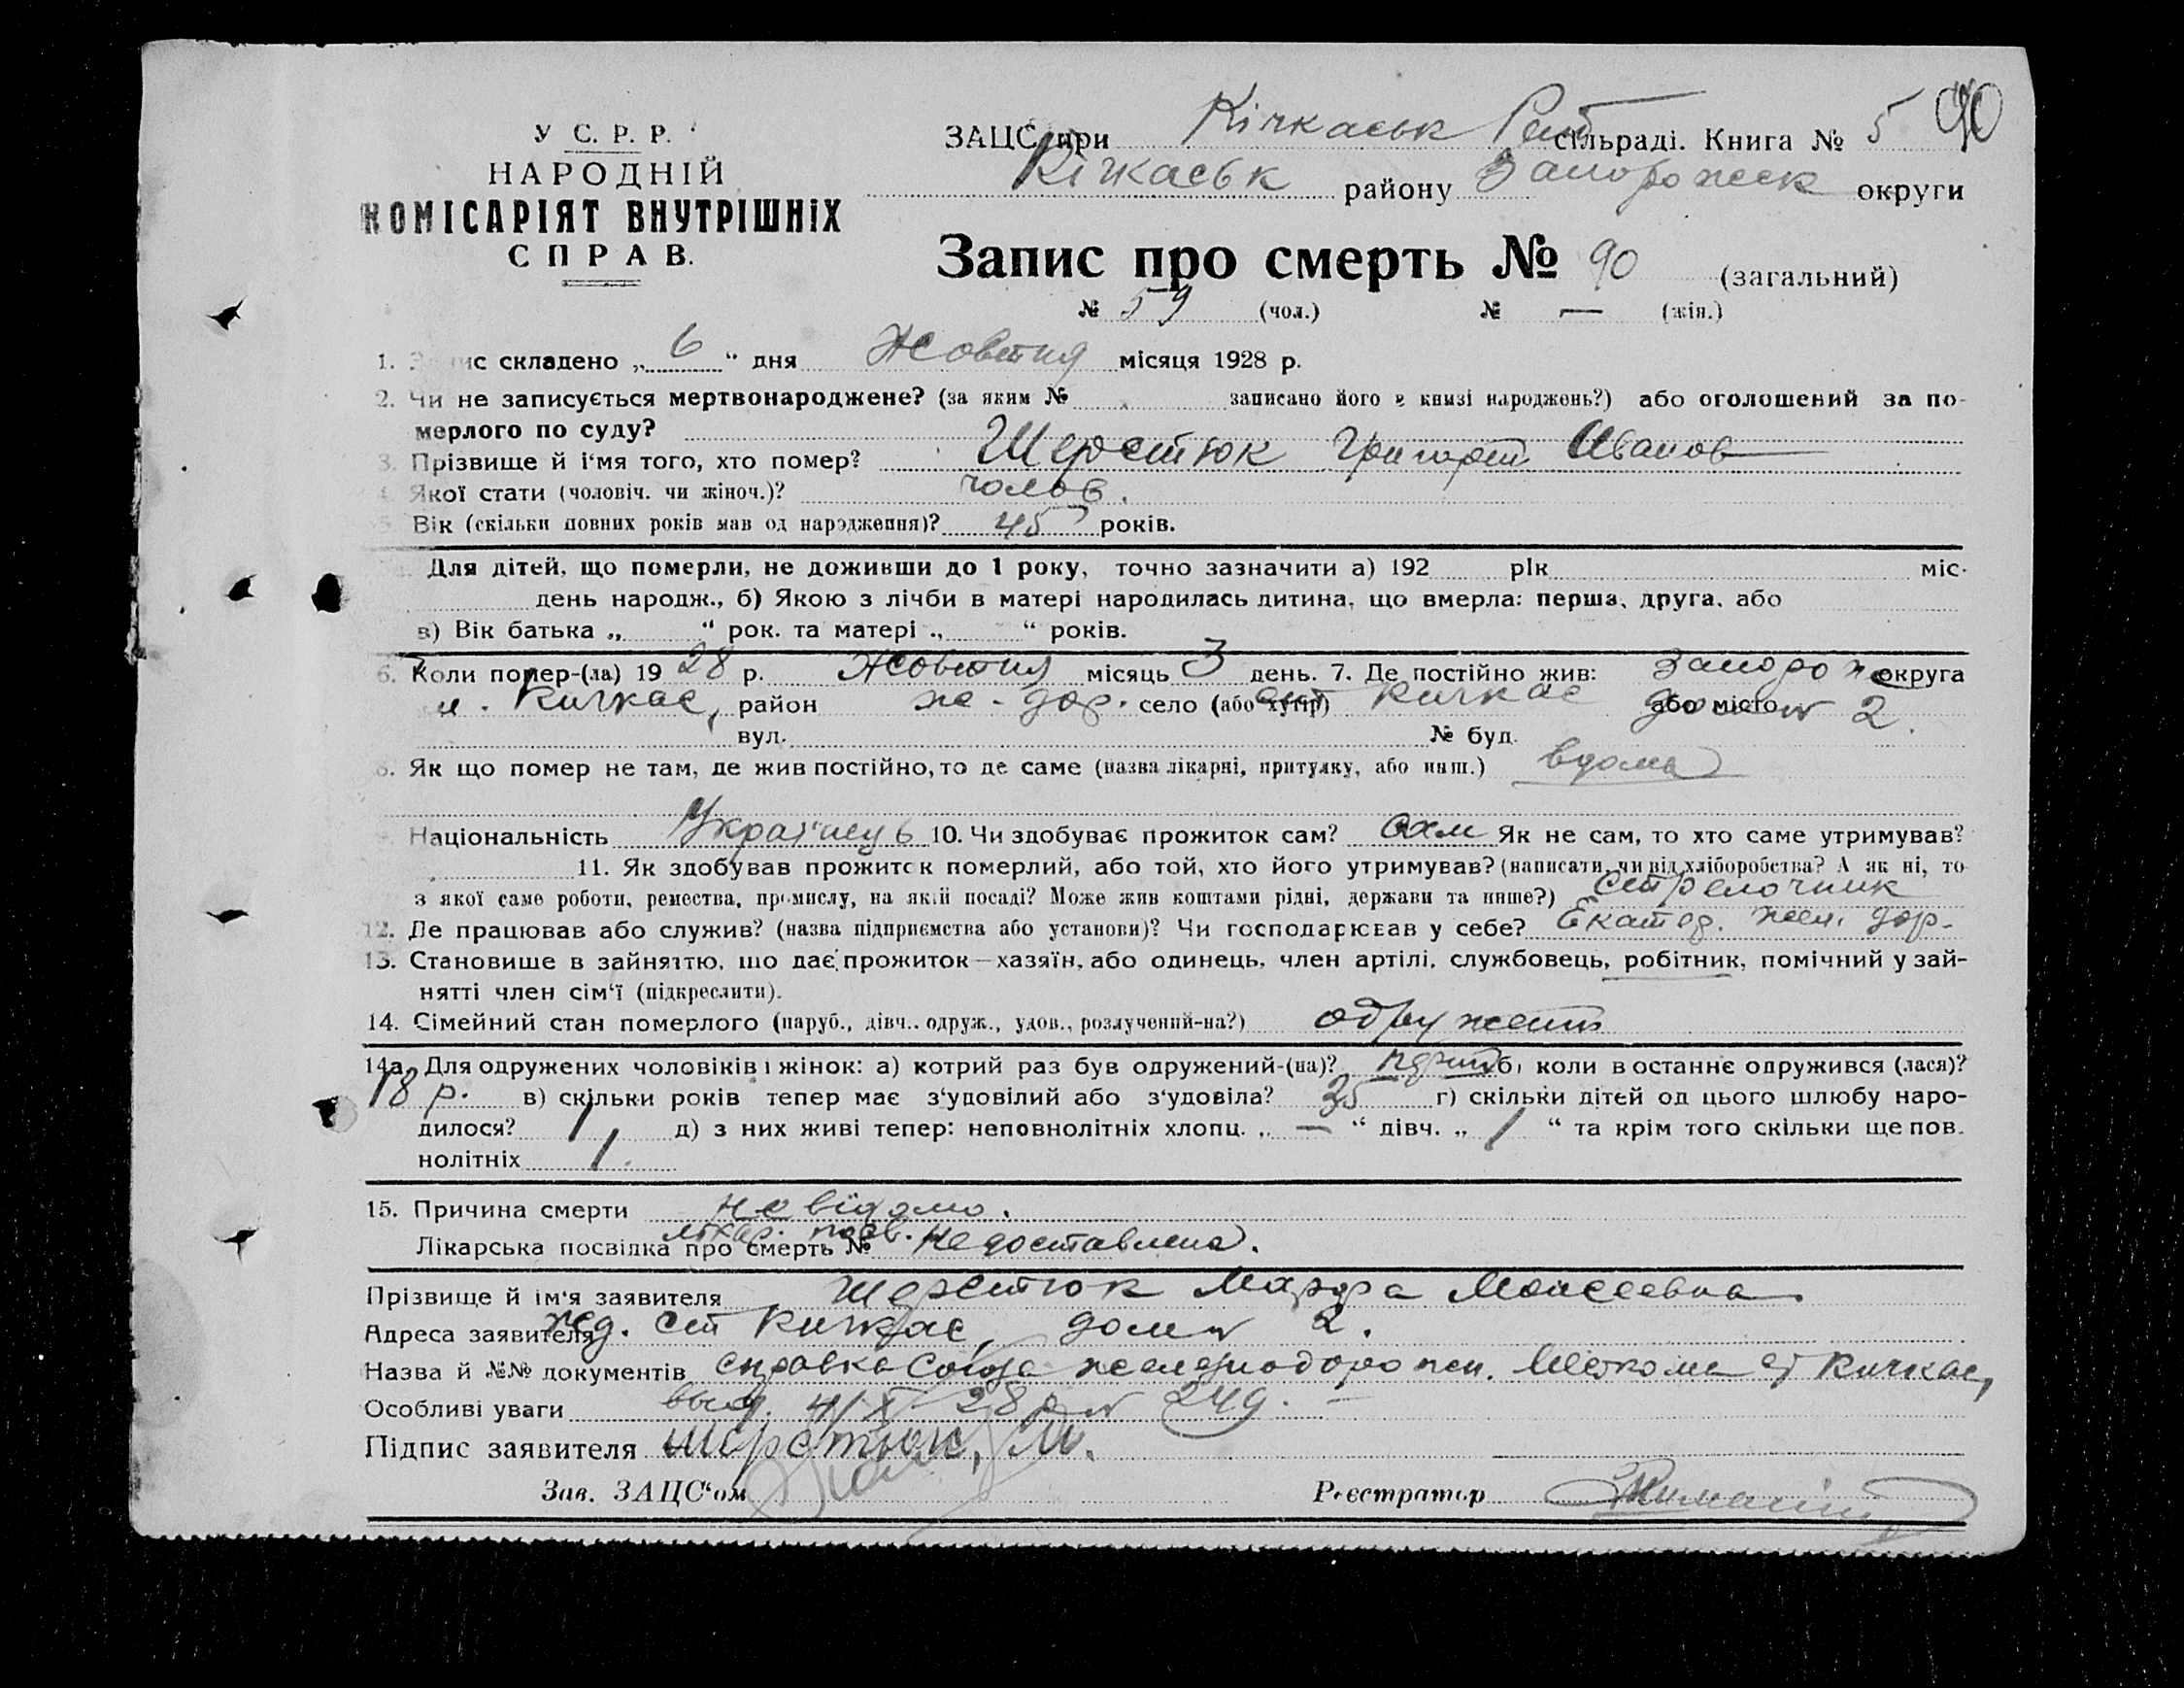 У С. Р. Р.
НАРОДНІЙ
КОМІСАРІЯТ ВНУТРІШНІХ
СПРАВ.
ЗАЦС при Кічкаськ сільраді. Книга № 5 90
Кічкаськ району Запорожск округи
Запис про смерть № 90 (загальний)
№ 59 (чол.) № — (жін.)
1. Запис складено „ 6 “ дня Жовтня місяця 1928 р.
2. Чи не записується мертвонароджене? (за яким № записано його в книзі народжень?) або оголошений за по-
мерлого по суду?
3. Прізвище й і‘мя того, хто помер? Шерстюк Григорій Иванов
4. Якої стати (чоловіч. чи жіноч.)? чолов.
5. Вік (скільки повних років мав од народження)? 45 років.
Для дітей, що померли, не доживши до 1 року, точно зазначити а) 192 рік міс.
день народж., б) Якою з лічби в матері народилась дитина, що вмерла: перша, друга, або
в) Вік батька „ “ рок. та матері „ “ років.
6. Коли помер-(ла) 19 28 р. Жовтня місяць 3 день. 7. Де постійно жив: Запорож округа
Кичкас, район же-дор. село (або хутір) ст Кичкас або місто дом № 2.
вул. № буд.
8. Як що помер не там, де жив постійно, то де саме (назва лікарні, притулку, або инш.) вдома
Національність Українець 10. Чи здобуває прожиток сам? сам Як не сам, то хто саме утримував?
11. Як здобував прожиток померлий, або той, хто його утримував? (написати, чи від хліборобства? А як ні, то
з якої саме роботи, ремества, промислу, на якій посаді? Може жив коштами рідні, держави та инше?) Стрелочник
12. Де працював або служив? (назва підприємства або установи)? Чи господарював у себе? Екатер. жел. дор.
13. Становище в зайняттю, що дає прожиток—хазяїн, або одинець, член артілі, службовець, робітник, помічний у зай-
нятті член сім‘ї (підкреслити).
14. Сімейний стан померлого (паруб., дівч., одруж., удов., розлучений-на?) одружени
14а. Для одружених чоловіків і жінок: а) котрий раз був одружений-(на)? перший б) коли в останнє одружився (лася)?
18 р. в) скільки років тепер має з‘удовілий або з‘удовіла? 35 г) скільки дітей од цього шлюбу наро-
дилося? 1, д) з них живі тепер: неповнолітніх хлопц. „ — “ дівч. „ 1 “ та крім того скільки ще пов.
нолітніх 1.
15. Причина смерти невідомо.
лікар. посв.
Лікарська посвідка про смерть № недоставлена.
Прізвище й ім‘я заявителя Шерстюк Марфа Моисеевна
Адреса заявителя жд. ст Кичкас, дом № 2.
Назва й №№ документів справка Союза железнодорожн. Месткома ст Кичкас,
Особливі уваги выд. 4/X 28 р № 249. —
Підпис заявителя Шерстюк, М.
Зав. ЗАЦС‘ом Реєстратор